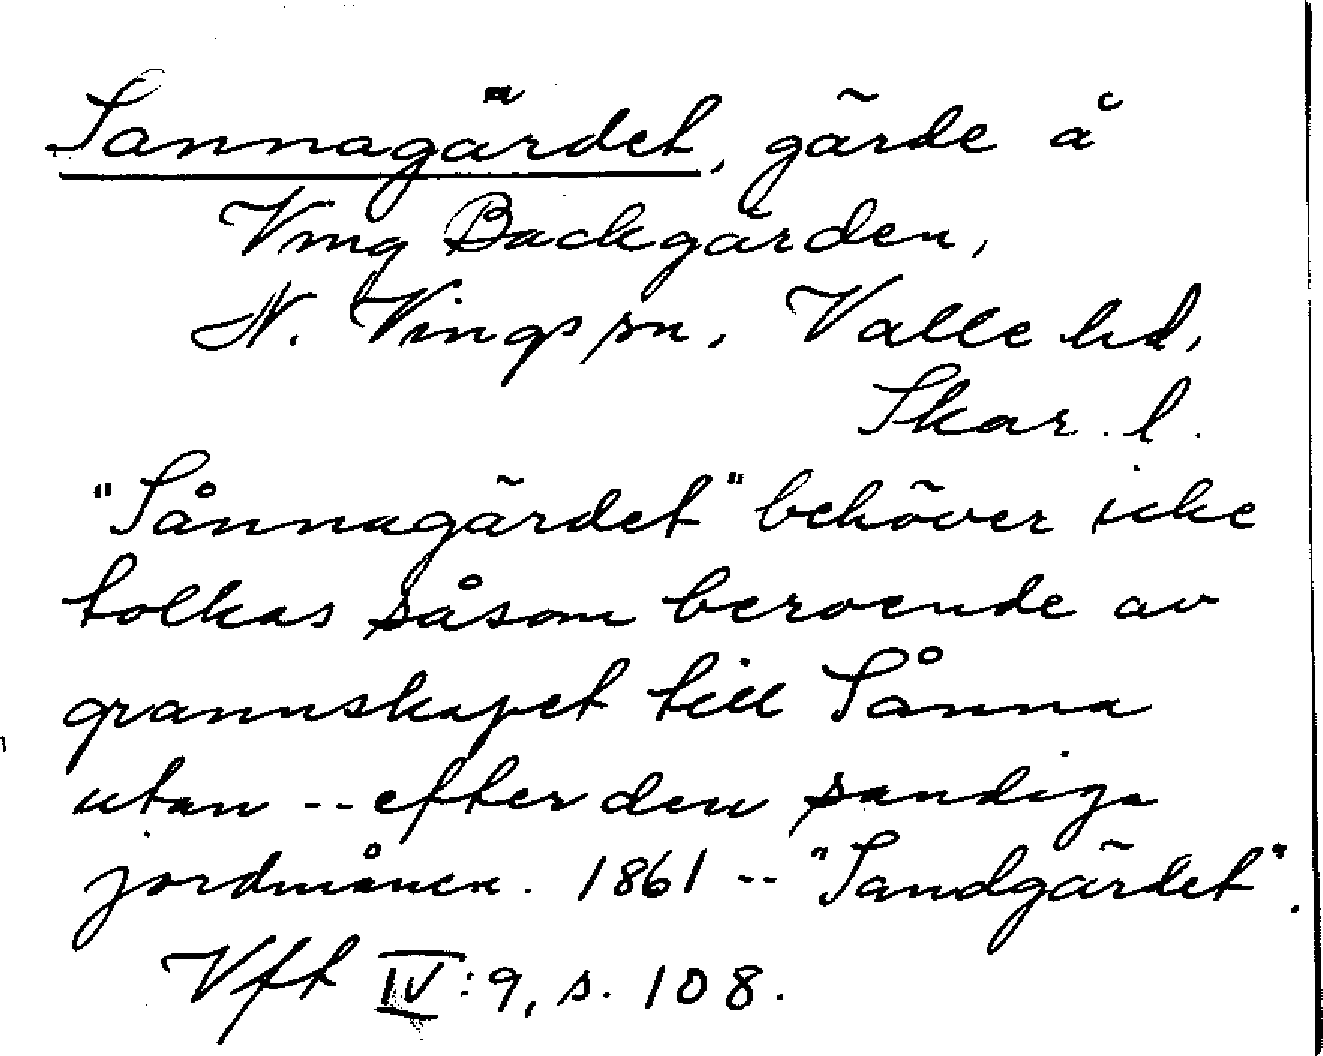 Sannagärdet, gärde å
Ving Backgården,
N. Vings sn, Valle hd,
Skar. l.
"Sånnagärdet" behöver icke
tolkas såsom beroende av
grannskapet till Sånna
utan -- efter den sandiga
jordmånen. 1861 -- "Sandgärdet".
Vft IV:9, s. 108.